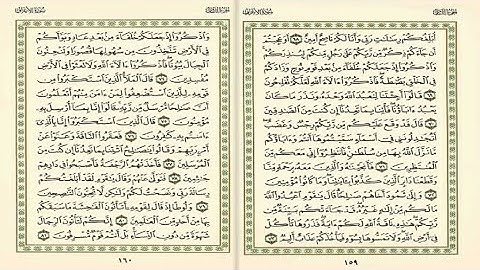 الجزء الثامن سورة الأعراف
أُبَلِّغُكُمْ رِسَالَاتِ رَبِّي وَأَنَا لَكُمْ نَاصِحٌ أَمِينٌ ٦٨ أَوَعَجِبْتُمْ
أَن جَاءَكُمْ ذِكْرٌ مِّن رَّبِّكُمْ عَلَىٰ رَجُلٍ مِّنكُمْ لِيُنذِرَكُمْ
وَاذْكُرُوا إِذْ جَعَلَكُمْ خُلَفَاءَ مِن بَعْدِ قَوْمِ نُوحٍ وَزَادَكُمْ
فِي الْخَلْقِ بَصْطَةً فَاذْكُرُوا آلَاءَ اللَّهِ لَعَلَّكُمْ تُفْلِحُونَ
٦٩ قَالُوا أَجِئْتَنَا لِنَعْبُدَ اللَّهَ وَحْدَهُ وَنَذَرَ مَا كَانَ
يَعْبُدُ آبَاؤُنَا فَأْتِنَا بِمَا تَعِدُنَا إِن كُنتَ مِنَ الصَّادِقِينَ
٧٠ قَالَ قَدْ وَقَعَ عَلَيْكُم مِّن رَّبِّكُمْ رِجْسٌ وَغَضَبٌ
أَتُجَادِلُونَنِي فِي أَسْمَاءٍ سَمَّيْتُمُوهَا أَنتُمْ وَآبَاؤُكُم
مَّا نَزَّلَ اللَّهُ بِهَا مِن سُلْطَانٍ فَانتَظِرُوا إِنِّي مَعَكُم مِّنَ
الْمُنتَظِرِينَ ٧١ فَأَنجَيْنَاهُ وَالَّذِينَ مَعَهُ بِرَحْمَةٍ مِّنَّا
وَقَطَعْنَا دَابِرَ الَّذِينَ كَذَّبُوا بِآيَاتِنَا وَمَا كَانُوا مُؤْمِنِينَ
٧٢ وَإِلَىٰ ثَمُودَ أَخَاهُمْ صَالِحًا قَالَ يَا قَوْمِ اعْبُدُوا اللَّهَ
مَا لَكُم مِّنْ إِلَٰهٍ غَيْرُهُ قَدْ جَاءَتْكُم بَيِّنَةٌ مِّن
رَّبِّكُمْ هَٰذِهِ نَاقَةُ اللَّهِ لَكُمْ آيَةً فَذَرُوهَا تَأْكُلْ
فِي أَرْضِ اللَّهِ وَلَا تَمَسُّوهَا بِسُوءٍ فَيَأْخُذَكُمْ عَذَابٌ أَلِيمٌ ٧٣
١٥٩
الجزء الثامن سورة الأعراف
وَاذْكُرُوا إِذْ جَعَلَكُمْ خُلَفَاءَ مِن بَعْدِ عَادٍ وَبَوَّأَكُمْ
فِي الْأَرْضِ تَتَّخِذُونَ مِن سُهُولِهَا قُصُورًا وَتَنْحِتُونَ
الْجِبَالَ بُيُوتًا فَاذْكُرُوا آلَاءَ اللَّهِ وَلَا تَعْثَوْا فِي الْأَرْضِ
مُفْسِدِينَ ٧٤ قَالَ الْمَلَأُ الَّذِينَ اسْتَكْبَرُوا مِن
قَوْمِهِ لِلَّذِينَ اسْتُضْعِفُوا لِمَنْ آمَنَ مِنْهُمْ أَتَعْلَمُونَ
أَنَّ صَالِحًا مُّرْسَلٌ مِّن رَّبِّهِ قَالُوا إِنَّا بِمَا أُرْسِلَ بِهِ
مُؤْمِنُونَ ٧٥ قَالَ الَّذِينَ اسْتَكْبَرُوا إِنَّا بِالَّذِي
آمَنتُم بِهِ كَافِرُونَ ٧٦ فَعَقَرُوا النَّاقَةَ وَعَتَوْا عَنْ
أَمْرِ رَبِّهِمْ وَقَالُوا يَا صَالِحُ ائْتِنَا بِمَا تَعِدُنَا إِن كُنتَ مِنَ
الْمُرْسَلِينَ ٧٧ فَأَخَذَتْهُمُ الرَّجْفَةُ فَأَصْبَحُوا فِي دَارِهِمْ
جَاثِمِينَ ٧٨ فَتَوَلَّىٰ عَنْهُمْ وَقَالَ يَا قَوْمِ لَقَدْ أَبْلَغْتُكُمْ
رِسَالَةَ رَبِّي وَنَصَحْتُ لَكُمْ وَلَٰكِن لَّا تُحِبُّونَ النَّاصِحِينَ
٧٩ وَلُوطًا إِذْ قَالَ لِقَوْمِهِ أَتَأْتُونَ الْفَاحِشَةَ مَا سَبَقَكُم
بِهَا مِنْ أَحَدٍ مِّنَ الْعَالَمِينَ ٨٠ إِنَّكُمْ لَتَأْتُونَ الرِّجَالَ
شَهْوَةً مِّن دُونِ النِّسَاءِ بَلْ أَنتُمْ قَوْمٌ مُّسْرِفُونَ ٨١
١٦٠